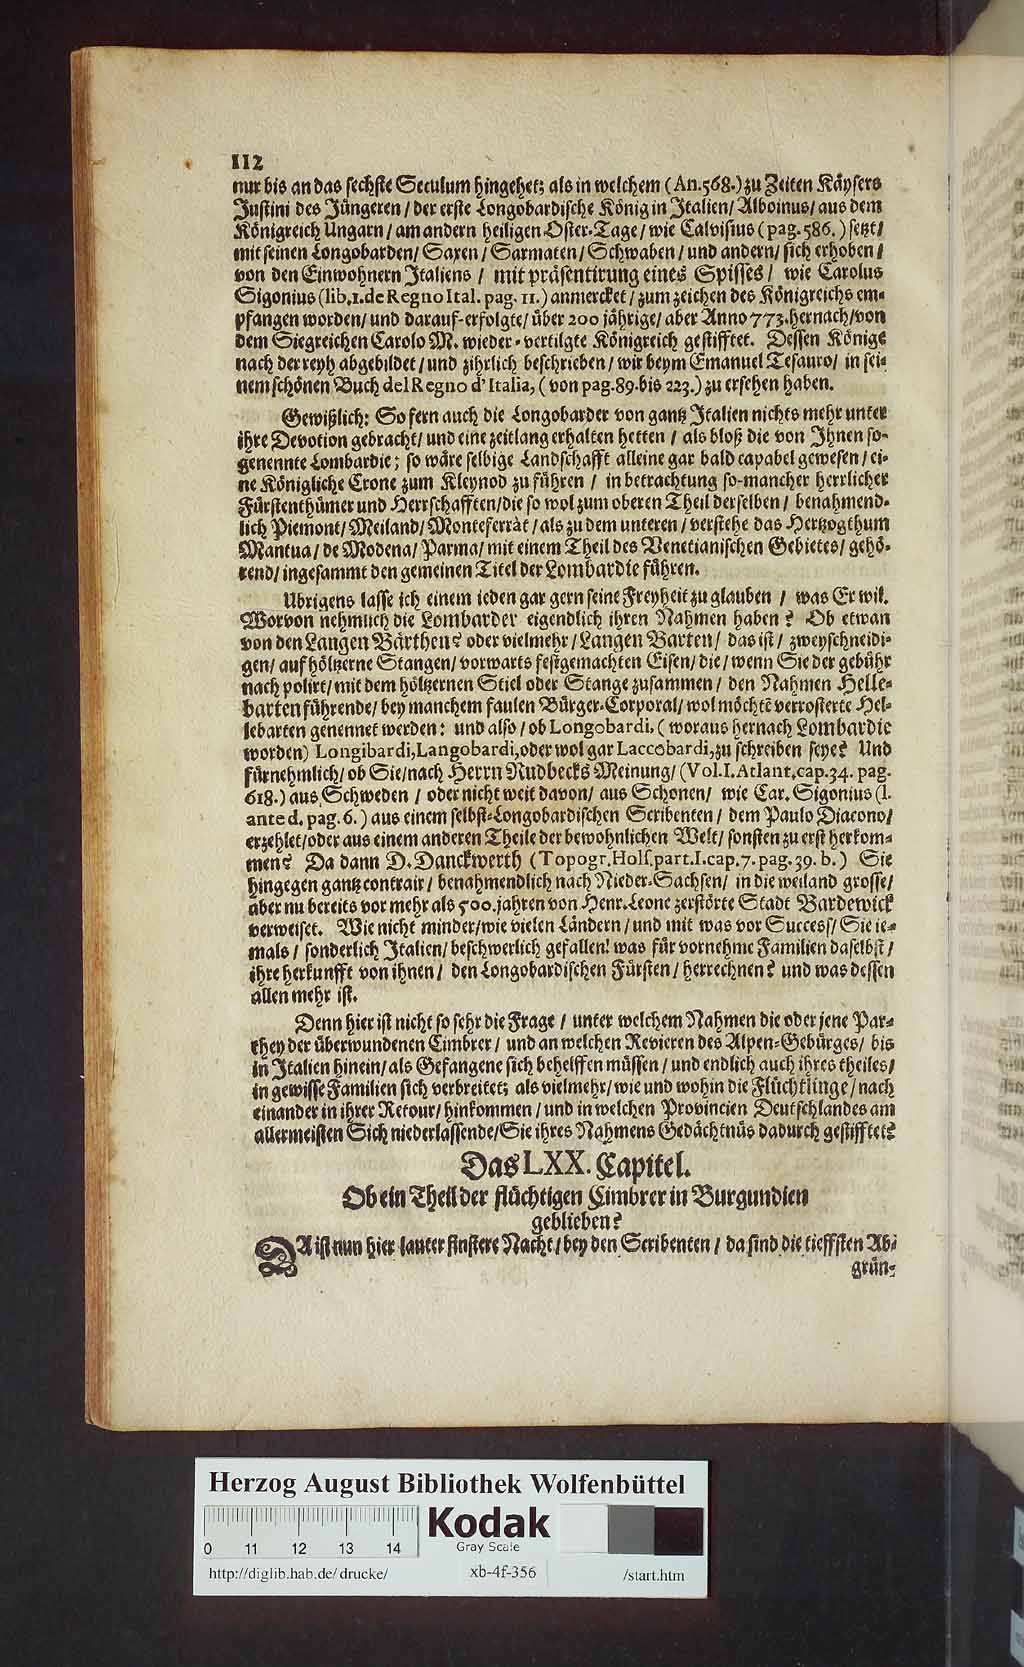 112
nur bis an das sechste Seculum hingehet; als in welchem (An. 568.) zu Zeiten Käysers
Justini des Jüngeren / der erste Longobardische König in Italien / Alboinus / aus dem
Königreich Ungarn / am andern heiligen Oster-Tage / wie Calvisius (pag. 586.) setzt /
mit seinen Longobarden / Saxen / Sarmaten / Schwaben / und andern / sich erhoben /
von den Einwohnern Italiens / mit präsentirung eines Spisses / wie Carolus
Sigonius (lib. 1. de Regno Ital. pag. 11.) anmercket / zum zeichen des Königreichs em-
pfangen worden / und darauf-erfolgte / über 200 jährige / aber Anno 773. hernach / von
dem Siegreichen Carolo M. wieder-vertilgte Königreich gestifftet. Dessen Könige
nach der reyh abgebildet / und zihrlich beschrieben / wir beym Emanuel Tesauro / in sei-
nem schönen Buch del Regno d'Italia, (von pag. 89. bis 223.) zu ersehen haben.
Gewißlich: So fern auch die Longobarder von gantz Italien nichts mehr unter
ihre Devotion gebracht / und eine zeitlang erhalten hetten / als bloß die von Ihnen so-
genennte Lombardie; so wäre selbige Landschafft alleine gar bald capabel gewesen / ei-
ne Königliche Crone zum Kleynod zu führen / in betrachtung so-mancher herrlicher
Fürstenthümer und Herrschafften / die so wol zum oberen Theil derselben / benahmend-
lich Piemont / Meiland / Monteferràt / als zu dem unteren / verstehe das Hertzogthum
Mantua / de Modena / Parma / mit einem Theil des Venetianischen Gebietes / gehö-
rend / ingesammt den gemeinen Titel der Lombardie führen.
Ubrigens lasse ich einem ieden gar gern seine Freyheit zu glauben / was Er wil.
Worvon nehmlich die Lombarder eigendlich ihren Nahmen haben? Ob etwan
von den Langen Bärthen? oder vielmehr / Langen Barten / das ist / zweyschneidi-
gen / auf höltzerne Stangen / vorwarts festgemachten Eisen / die / wenn Sie der gebühr
nach polirt / mit dem höltzernen Stiel oder Stange zusammen / den Nahmen Helle-
barten führende / bey manchem faulen Bürger-Corporal / wol möchtē verrosterte Hel-
lebarten genennet werden: und also / ob Longobardi, (woraus hernach Lombardie
worden) Longibardi, Langobardi, oder wol gar Laccobardi, zu schreiben seye? Und
fürnehmlich / ob Sie / nach Herrn Rudbecks Meinung / (Vol. I. Atlant. cap. 34. pag.
618.) aus Schweden / oder nicht weit davon / aus Schonen / wie Car. Sigonius (l.
ante d. pag. 6.) aus einem selbst-Longobardischen Scribenten / dem Paulo Diacono /
erzehlet / oder aus einem anderen Theile der bewohnlichen Welt / sonsten zu erst herkom-
men? Da dann D. Danckwerth (Topogr. Hols. part. I. cap. 7. pag. 39. b.) Sie
hingegen gantz contrair / benahmendlich nach Nieder-Sachsen / in die weiland grosse /
aber nu bereits vor mehr als 500. jahren von Henr. Leone zerstörte Stadt Bardewick
verweiset. Wie nicht minder / wie vielen Ländern / und mit was vor Success / Sie ie-
mals / sonderlich Italien / beschwerlich gefallen! was für vornehme Familien daselbst /
ihre herkunfft von ihnen / den Longobardischen Fürsten / herrechnen? und was dessen
allen mehr ist.
Denn hier ist nicht so sehr die Frage / unter welchem Nahmen die oder jene Par-
they der überwundenen Cimbrer / und an welchen Revieren des Alpen-Gebürges / bis
in Italien hinein / als Gefangene sich behelffen müssen / und endlich auch ihres theiles /
in gewisse Familien sich verbreitet; als vielmehr / wie und wohin die Flüchtlinge / nach
einander in ihrer Retour / hinkommen / und in welchen Provincien Deutschlandes am
allermeisten Sich niederlassende / Sie ihres Nahmens Gedächtnüs dadurch gestifftet?
Das LXX. Capitel.
Ob ein Theil der flüchtigen Cimbrer in Burgundien
geblieben?
DA ist nun hier lauter finstere Nacht / bey den Scribenten / da sind die tieffsten Ab-
grün-
Herzog August Bibliothek Wolfenbüttel
Kodak
Gray Scale
0 11 12 13 14
http://diglib.hab.de/drucke/ xb-4f-356 /start.htm